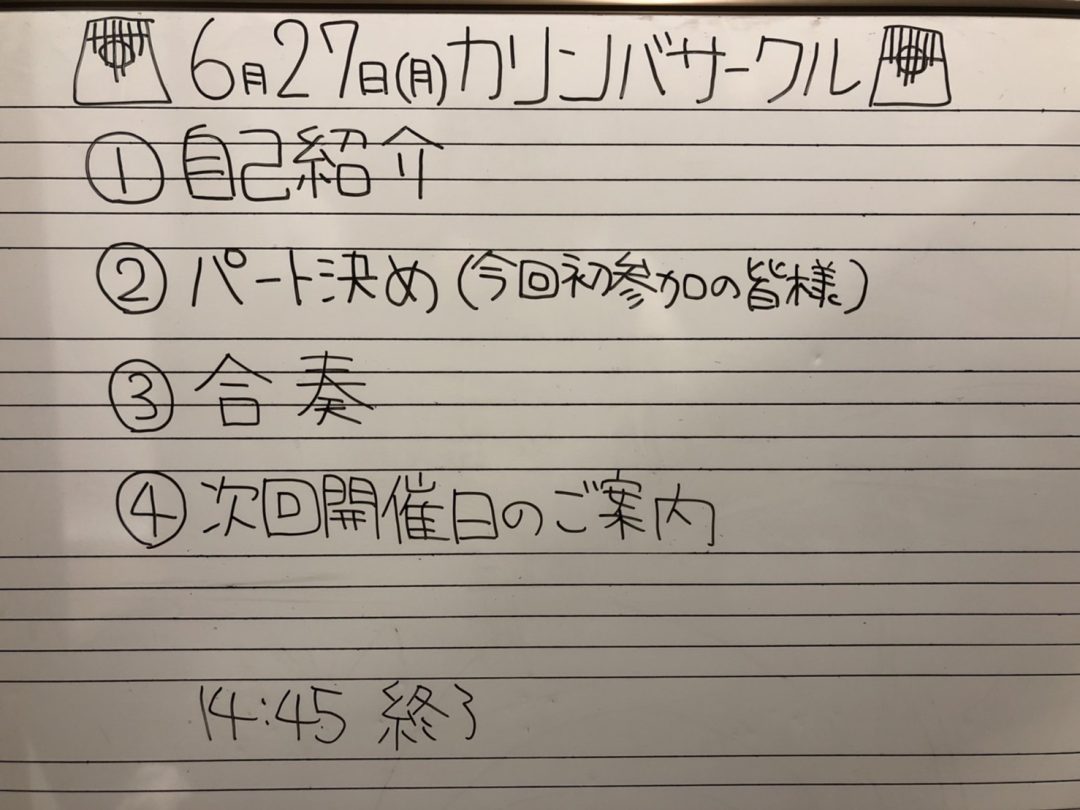 6月27日(月)カリンバサークル
① 自己紹介
② パート決め(今回初参加の皆様)
③ 合奏
④ 次回開催日のご案内
14:45 終了